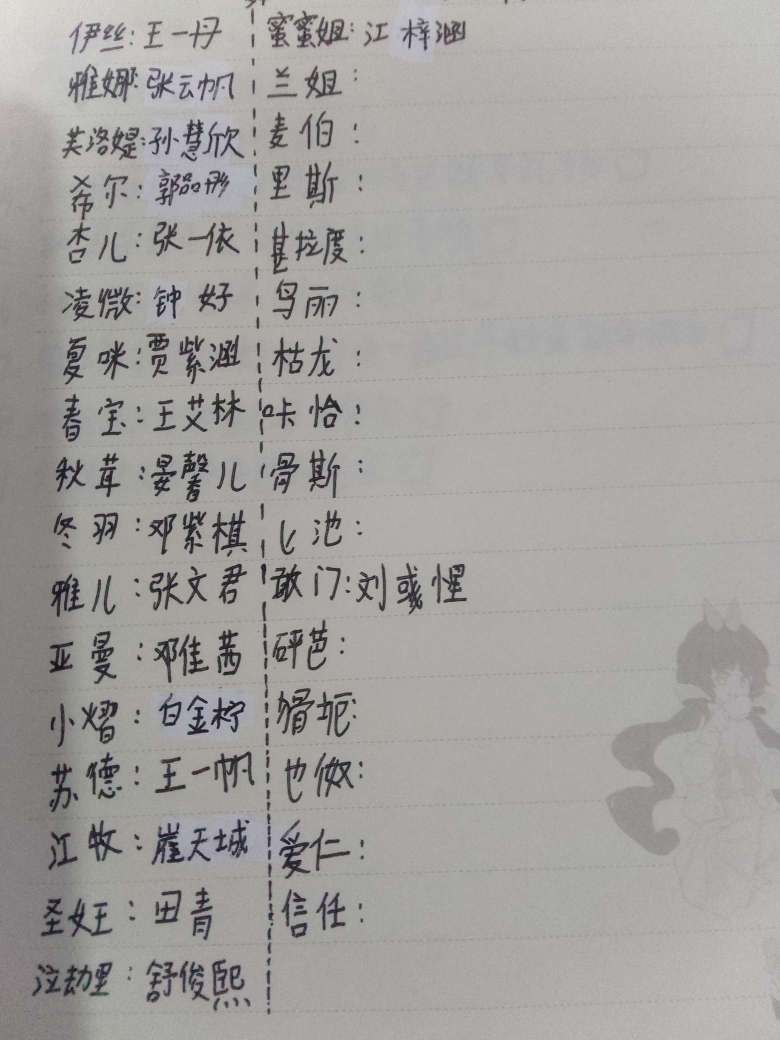 伊丝：王一丹
雅娜：张云帆
芙洛媞：孙慧欣
希尔：郭品彤
杏儿：张一依
凌微：钟好
夏咪：贾紫涵
春宝：王艾林
秋茸：晏馨儿
冬羽：邓紫棋
雅儿：张文君
亚曼：邓佳茜
小熠：白金柠
苏德：王一帆
江牧：崖天城
圣女王：田青
泣劫里：舒俊熙
蜜蜜姐：江梓涵
兰姐：
麦伯：
里斯：
甚拉度：
鸟丽：
枯龙：
咔恰：
骨斯：
匕池：
敢门：刘彧惺
砰芭：
也傲：
爱仁：
信任：